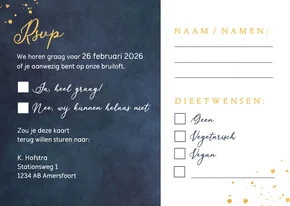 Rsvp
We horen graag voor 26 februari 2026
of je aanwezig bent op onze bruiloft.
Ja, heel graag!
Nee, wij kunnen helaas niet.
Zou je deze kaart
terug willen sturen naar:
K. Hofstra
Stationsweg 1
1234 AB Amersfoort
NAAM / NAMEN:
DIEETWENSEN:
Geen
Vegetarisch
Vegan